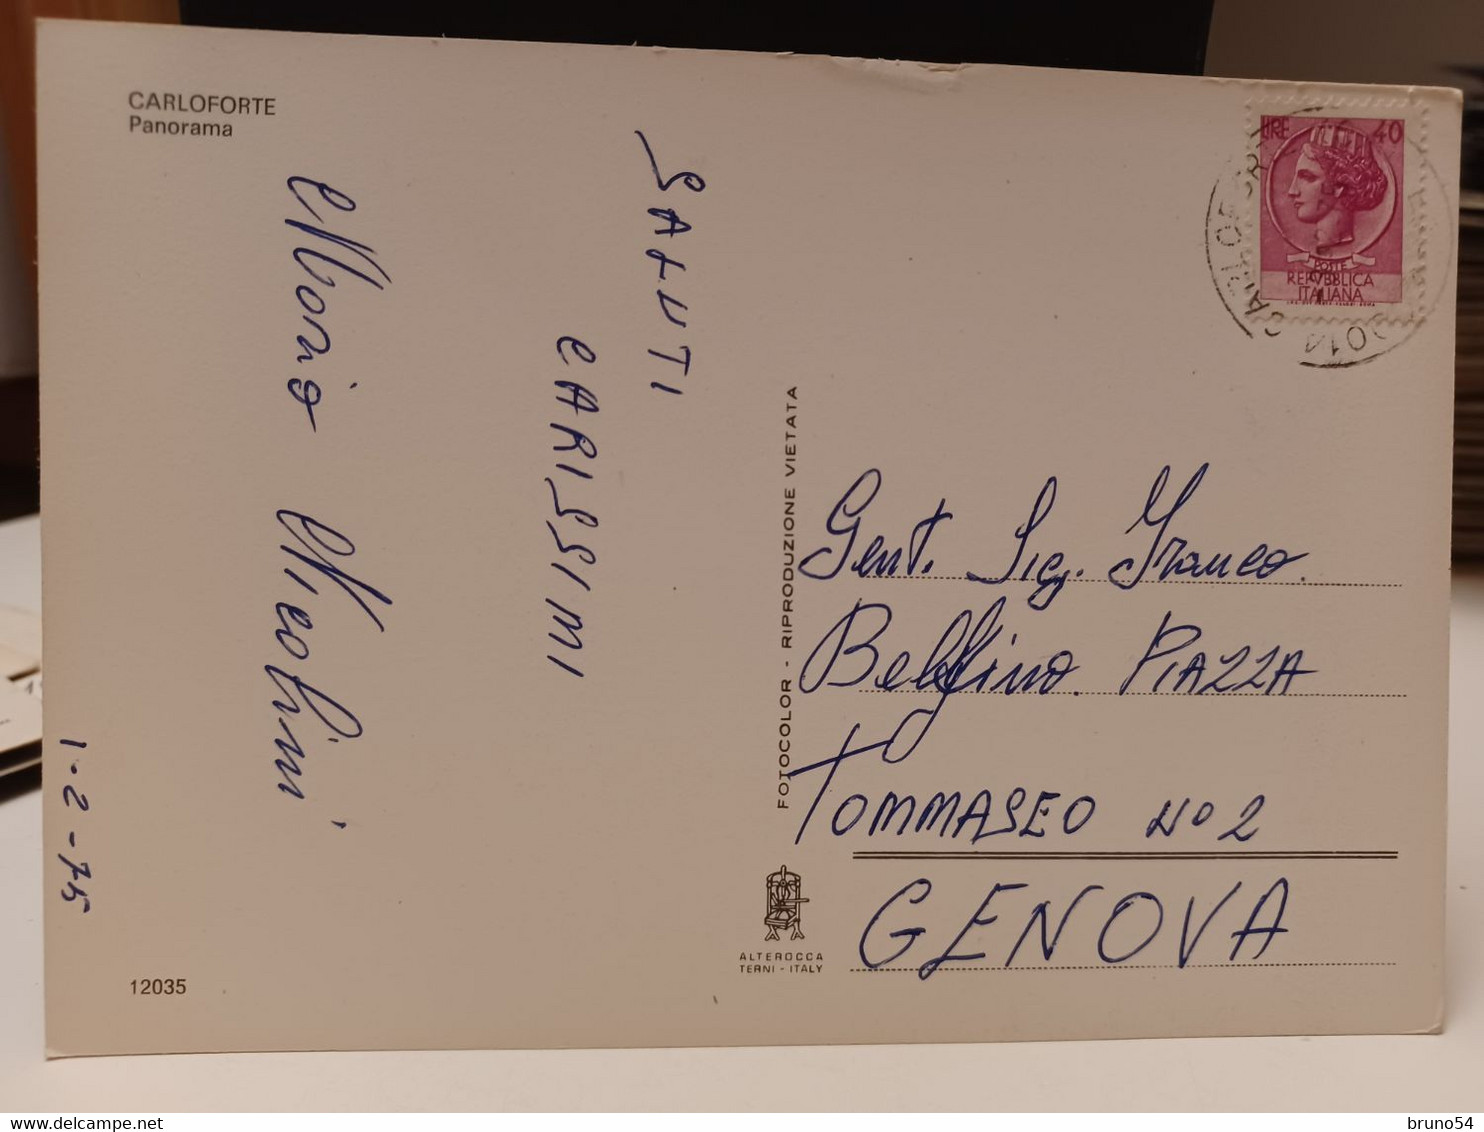 CARLOFORTE
Panorama
SALUTI
CARISSIMI
Mario Nicolini
1-2-75
12035
FOTOCOLOR - RIPRODUZIONE VIETATA
ALTEROCCA
TERNI - ITALY
LIRE 40
POSTE
REPVBBLICA
ITALIANA
Gent. Sig. Franco
Belfino PIAZZA
TOMMASEO No 2
GENOVA
bruno54